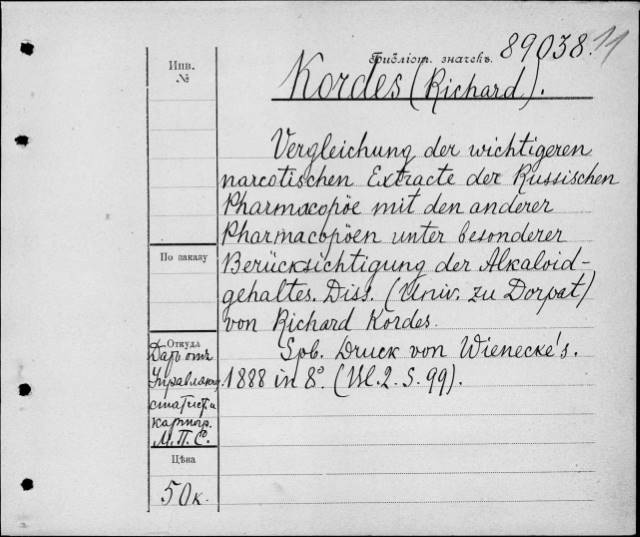 Библіот. значекъ. 89038. 11
Инв.
№
Kordes (Richard).
Vergleichung der wichtigeren
narcotischen Extracte der Russischen
Pharmacopöe mit den anderer
Pharmacopöen unter besonderer
Berücksichtigung der Alkaloid-
gehaltes. Diss. (Univ. zu Dorpat)
von Richard Kordes.
Spb. Druck von Wienecke's.
1888 in 8°. (Bl. 2. S. 99).
По заказу
Откуда
Даръ отъ
Управлен.
статист. и
картогр.
М.П.С.
Цѣна
50к.